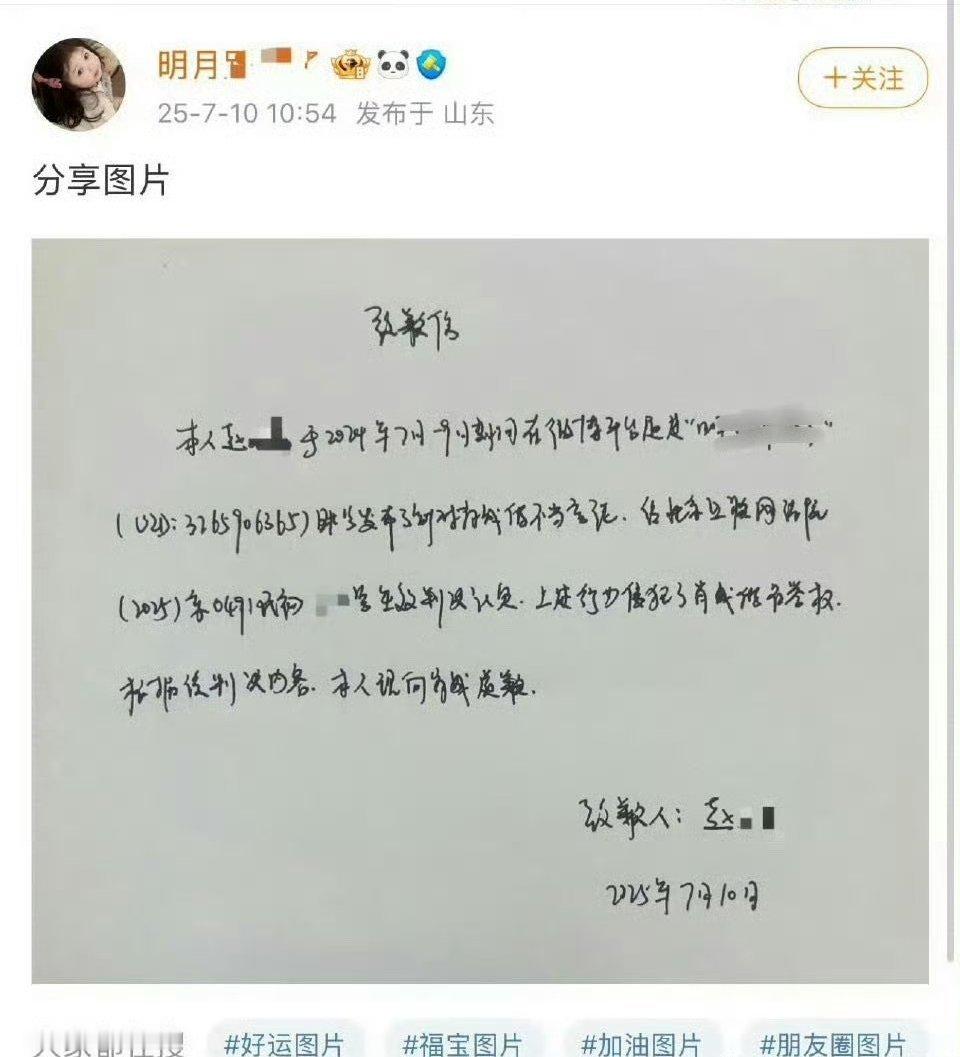 明月
25-7-10 10:54 发布于 山东
+关注
分享图片
致歉信
本人赵 于2024年7月-9月期间在微博平台通过"
(UID:3265906365)账号发布了针对肖战的不当言论.经北京互联网法院
(2025)京0491民初 号生效判决认定.上述行为侵犯了肖战的名誉权.
根据该判决内容.本人现向肖战致歉.
致歉人:赵
2025年7月10日
大家都在搜 #好运图片 #福宝图片 #加油图片 #朋友圈图片